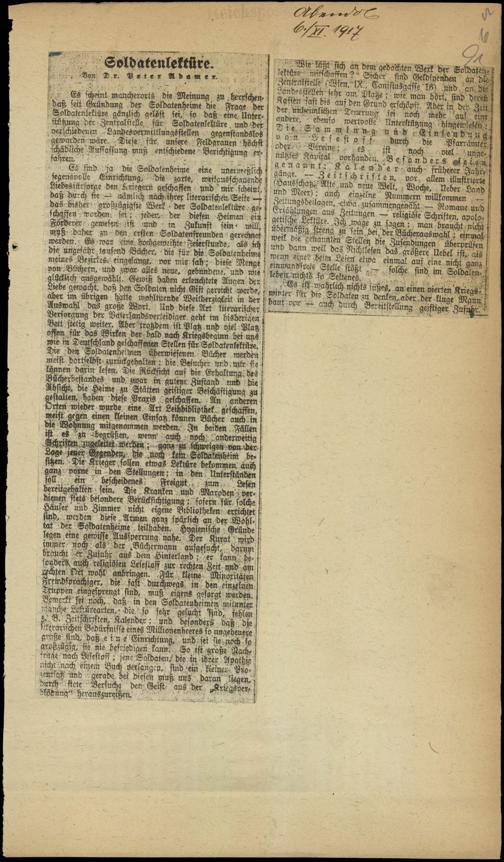 Abendbl
6/XI 1917
Soldatenlektüre.
Von Dr. Peter Adamer.
Es scheint mancherorts die Meinung zu herrschen,
daß seit Gründung der Soldatenheime die Frage der
Soldatenlektüre gänzlich gelöst sei, so daß eine Unter-
stützung der Zentralstelle für Soldatenlektüre und der
verschiedenen Landesvermittlungsstellen gegenstandslos
geworden wäre. Diese für unsere Feldgrauen höchst
schädliche Auffassung muß entschiedene Berichtigung er-
fahren.
Es sind ja die Soldatenheime eine unermeßlich
segensvolle Einrichtung, die zarte, weitausschauende
Liebesfürsorge den Kriegern geschaffen und mir scheint,
daß durch sie — nämlich nach ihrer literarischen Seite —
das bisher großzügigste Werk der Soldatenlektüre ge-
schaffen worden sei; jeder, der diesen Heimen ein
Förderer gewesen ist und in Zukunft sein will,
muß daher zu den ersten Soldatenfreunden gerechnet
werden. Es war eine hochgeweihte Feierstunde, als ich
die ungezählt tausend Bücher, die für die Soldatenheime
meines Bezirkes einzulangt, vor mir sah; diese Menge
von Büchern, und zwar alles neue, gebundene, und wie
glücklich ausgewählt. Gewiß haben erleuchtete Augen der
Liebe gewacht, daß den Soldaten nicht Gift gereicht werde,
aber im übrigen hatte wohltuende Weitherzigkeit in der
Auswahl das große Wort. Und diese Art literarischer
Versorgung der Vaterlandsverteidiger geht im bisherigen
Bart stetig weiter. Aber trotzdem ist Platz und viel Platz
offen für das Wirken der bald nach Kriegsbeginn bei uns
wie in Deutschland geschaffenen Stellen für Soldatenlektüre.
Die den Soldatenheimen überwiesenen Bücher werden
meist dortselbst zurückgehalten; die Besucher und nur sie
können darin lesen. Die Rücksicht auf die Erhaltung des
Bücherbestandes und zwar in gutem Zustand und die
Absicht, die Heime zu Stätten geistiger Beschäftigung zu
gestalten, haben diese Praxis geschaffen. An anderen
Orten wieder wurde eine Art Leihbibliothek geschaffen,
meist gegen einen kleinen Einsatz können Bücher auch in
die Wohnung mitgenommen werden. In beiden Fällen
ist es zu begrüßen, wenn auch noch anderweitig
Schriften zugeleitet werden; ganz zu schweigen von der
Lage jener Gegenden, die noch kein Soldatenheim be-
sitzen. Die Krieger sollen etwas Lektüre bekommen auch
ganz vorne in den Stellungen; in den Unterständen
soll ein bescheidenes zum Lesen
bereitgehalten sein. Die Kranken und Maroden ver-
dienen stets besondere Berücksichtigung; sofern für solche
Häuser und Zimmer nicht eigene Bibliotheken errichtet
sind, werden diese Armen ganz spärlich an der Wohl-
tat der Soldatenheime teilhaben. Hygienische Gründe
legen eine gewisse Aussperrung nahe. Der Kurat wird
immer noch als der „Büchermann“ aufgesucht, darum
braucht er Zufuhr aus dem Hinterland; er kann be-
sonders auch religiösen Lesestoff zur rechten Zeit und am
rechten Ort wohl anbringen. Für kleine Minoritäten
Fremdsprachiger, die fast durchwegs in den einzelnen
Truppen eingesprengt sind, muß eigens gesorgt werden.
Bemerkt sei noch, daß in den Soldatenheimen mitunter
manche Lektürearten, die so sehr gesucht sind, fehlen,
z. B. Zeitschriften, Kalender; und besonders daß die
literarischen Bedürfnisse eines Millionenheeres so ungeheuer
große sind, daß eine Einrichtung, und sei sie noch so
großzügig, sie nie befriedigen kann. So ist große Nach-
frage nach Lesestoff; jene Soldaten, die in ihrer Apathie
nicht nach einem Buch verlangen, sind ein kleiner Pro-
zentsatz und gerade bei diesen muß uns daran liegen,
durch stete Versuche den Geist aus der „Kriegsver-
blödung“ herauszureißen.
Wie läßt sich an dem gedachten Werk der Soldaten-
lektüre mitschaffen? Sicher sind Geldspenden an die
Zentralstelle (Wien, IX., Canisiusgasse 16) und an die
Landesstellen sehr am Platze; wie man hört, sind deren
Kassen fast bis auf den Grund erschöpft. Aber in der Zeit
der unheimlichen Teuerung ist noch mehr auf eine
andere, ebenso wertvolle Unterstützung hinzuweisen:
Die Sammlung und Einsendung
von Lesestoff durch die Pfarrämter
oder Vereine; es ist noch viel unge-
nütztes Kapital vorhanden. Besonders seien
genannt: Kalender auch früherer Jahr-
gänge, — Zeitschriften, vor allem illustrierte
(Hausschatz, Alte und neue Welt, Woche, Ueber Land
und Meer; auch einzelne Nummern willkommen);
Zeitungsbeilagen, etwa zusammengenäht, — Romane und
Erzählungen aus Zeitungen — religiöse Schriften, apolo-
getische Lektüre. Ich wage zu sagen: man braucht nicht
übermäßig streng zu sein bei der Bücherauswahl; einmal
weil die genannten Stellen die Zusendungen überprüfen
und dann weil das Nichtlesen das größere Uebel ist, als
wenn einer beim Lesen etwa einmal auf eine nicht ganz
einwandfreie Stelle stößt solche sind im Soldaten-
leben nichts so Seltenes.
Es ist wahrlich nichts süßes, an einen vierten Kriegs-
winter für die Soldaten zu denken, aber der kluge Mann
baut vor — auch durch Bereitstellung geistiger Zufuhr.